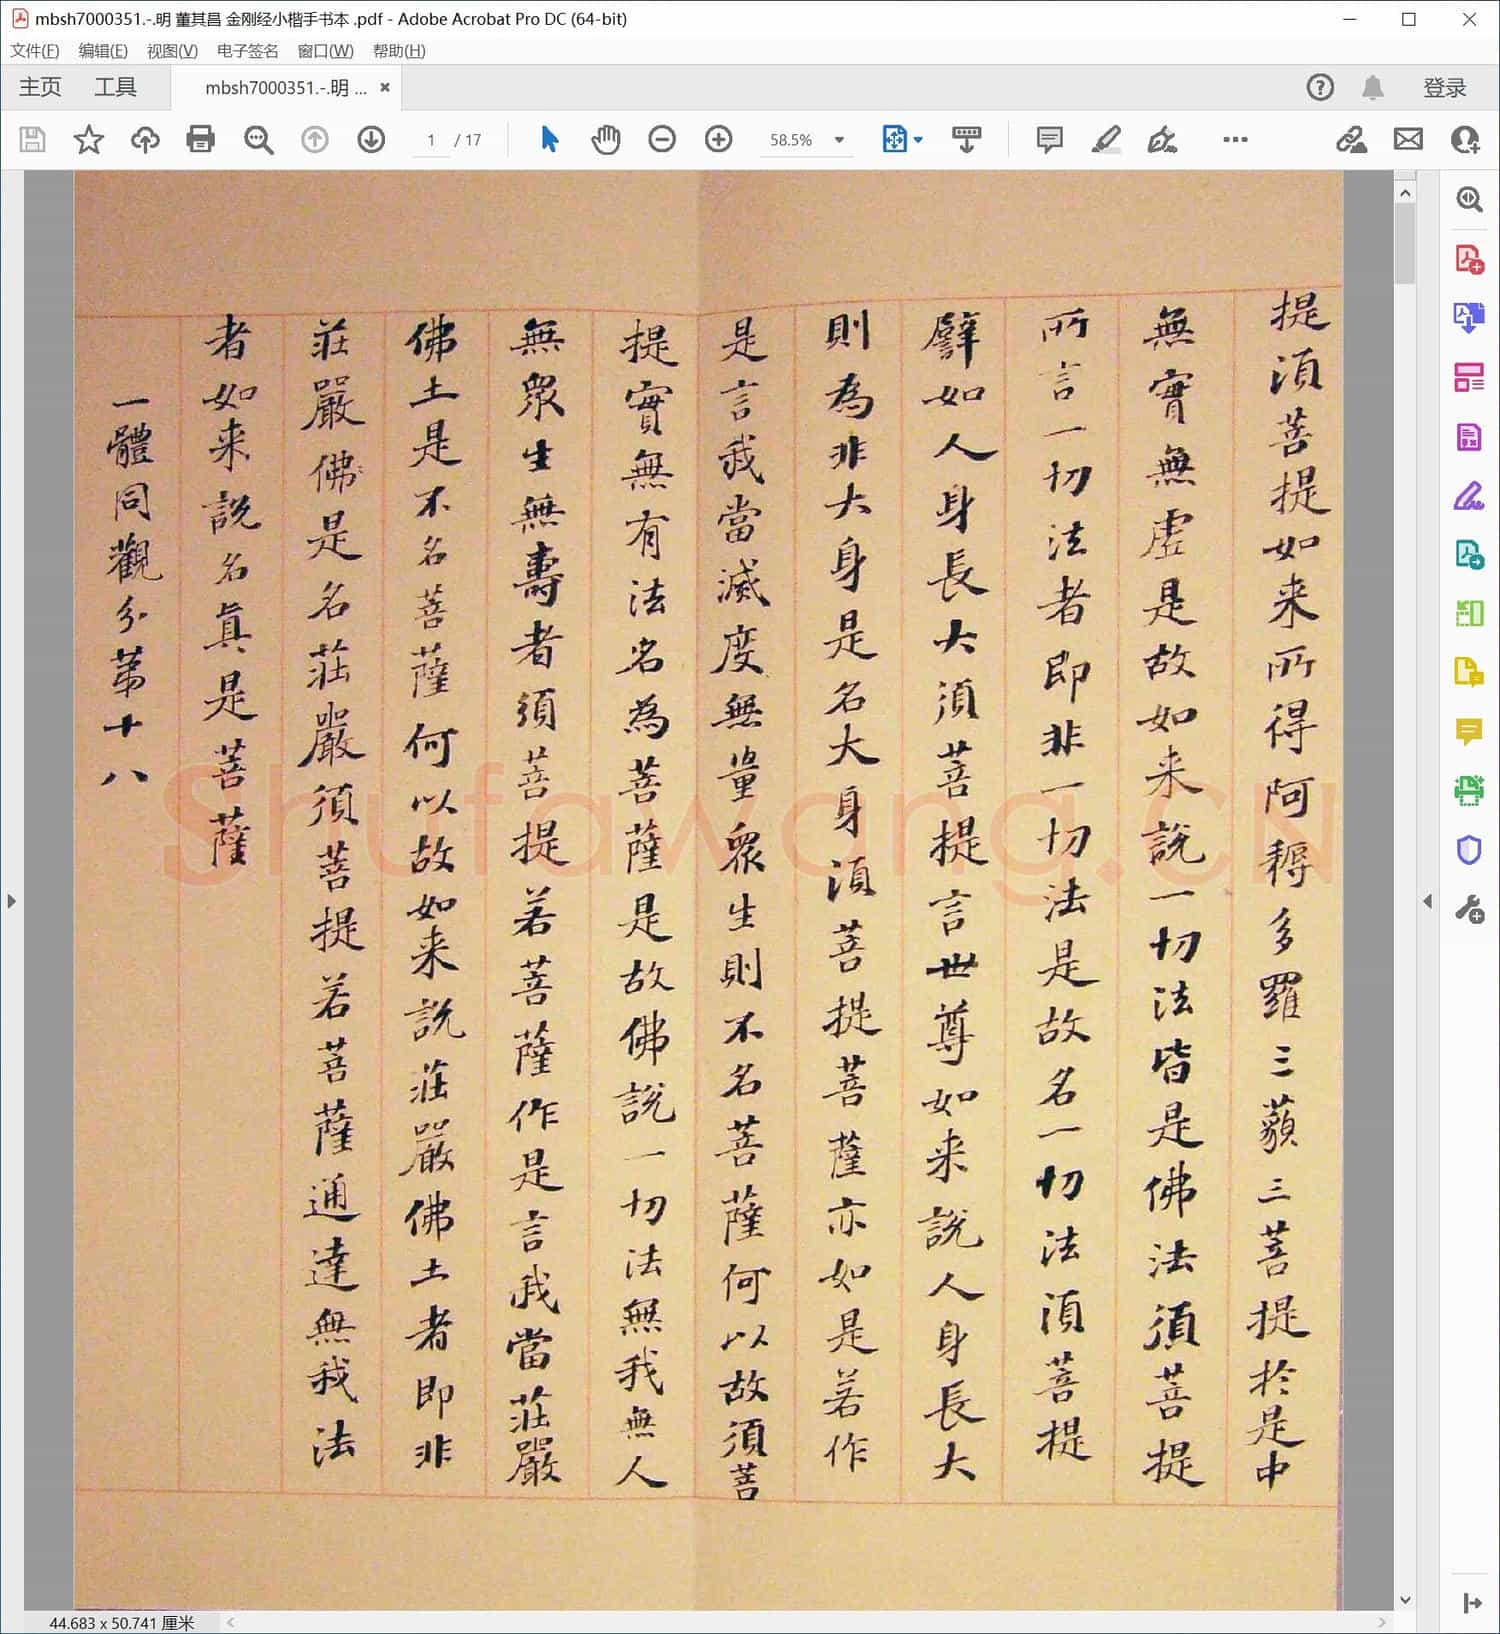 mbsh7000351.-.明 董其昌 金刚经小楷手书本 .pdf - Adobe Acrobat Pro DC (64-bit)
文件(F) 编辑(E) 视图(V) 电子签名 窗口(W) 帮助(H)
主页 工具 mbsh7000351.-.明 ... × 登录
1 / 17 58.5%
提須菩提如来所得阿耨多羅三藐三菩提於是中
無實無虛是故如来說一切法皆是佛法須菩提
所言一切法者即非一切法是故名一切法須菩提
譬如人身長大須菩提言世尊如来說人身長大
則為非大身是名大身須菩提菩薩亦如是若作
是言我當滅度無量衆生則不名菩薩何以故須菩
提實無有法名為菩薩是故佛說一切法無我無人
無衆生無壽者須菩提若菩薩作是言我當莊嚴
佛土是不名菩薩何以故如来說莊嚴佛土者即非
莊嚴佛是名莊嚴須菩提若菩薩通達無我法
者如来說名真是菩薩
一體同觀分第十八
Shufawang.CN
44.683 x 50.741 厘米